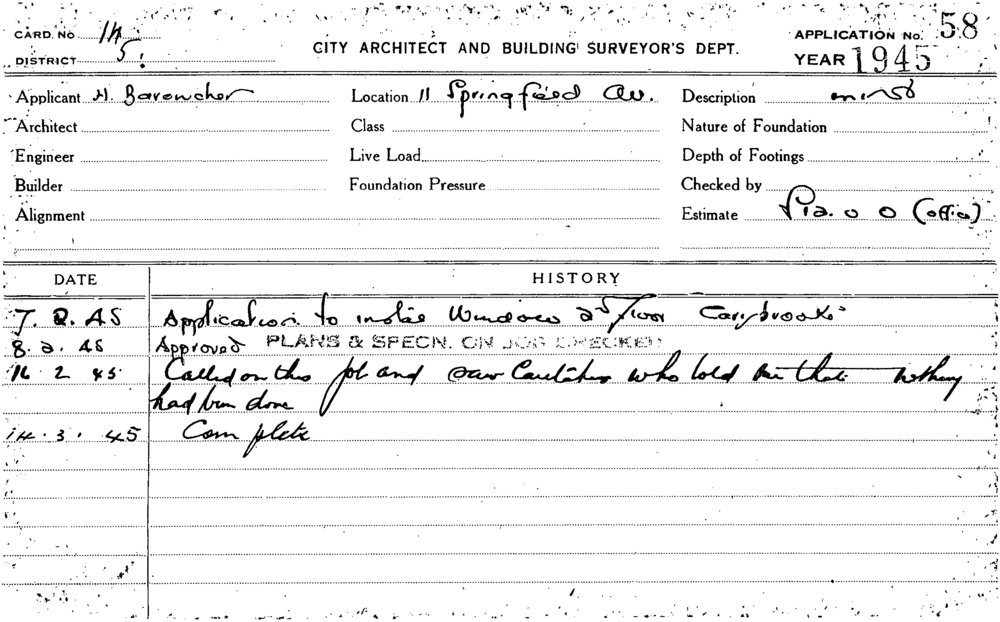 CARD. No 14 APPLICATION No. 58
DISTRICT 5. CITY ARCHITECT AND BUILDING SURVEYOR'S DEPT. YEAR 1945
Applicant H. Location 11 Springfield Av. Description
Architect Class Nature of Foundation
Engineer Live Load Depth of Footings
Builder Foundation Pressure Checked by
Alignment Estimate £12. 0 0 (office)
DATE HISTORY
7. 2. 45 Application to instal Windows 2nd Floor
8. 2. 45 Approved PLANS & SPECN. ON JOB CHECKED
16 2 45 Called on this job and saw Caretaker who told me that nothing
had been done
14. 3. 45 Complete